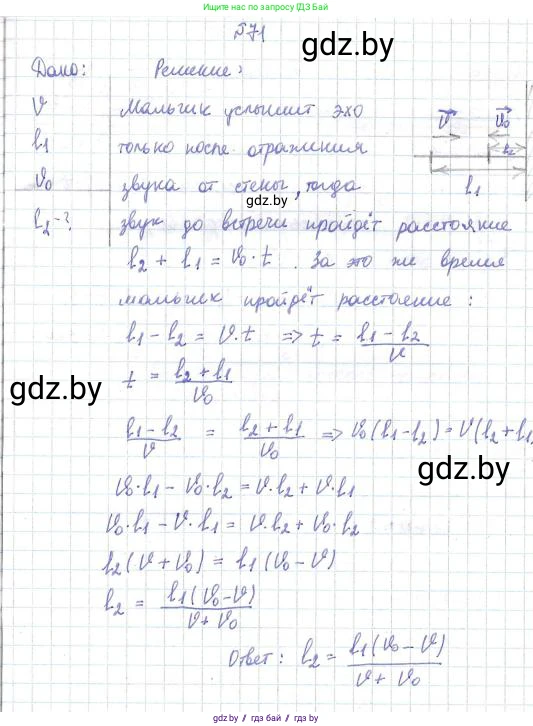 Большая перемена при запросе gdz.by
№71
gdz.by
Дано: Решение:
v
l₁
v₀
l₂-?
Мальчик услышит эхо
только после отражения
звука от стены, тогда
звук до встречи пройдёт расстояние
l₂ + l₁ = v₀·t. За это же время
мальчик пройдёт расстояние:
v⃗ v⃗₀
l₂
l₁
l₁ - l₂ = v·t ⇒ t = (l₁ - l₂)/v
gdz.by
t = (l₂ + l₁)/v₀
(l₁ - l₂)/v = (l₂ + l₁)/v₀ ⇒ v₀(l₁-l₂) = v(l₂+l₁
gdz.by
v₀·l₁ - v₀·l₂ = v·l₂ + v·l₁
v₀·l₁ - v·l₁ = v·l₂ + v₀·l₂
l₂(v + v₀) = l₁(v₀ - v)
l₂ = l₁(v₀-v)/(v + v₀)
Ответ: l₂ = l₁(v₀ - v)/(v + v₀)
gdz.by / гдз бай / gdz.by